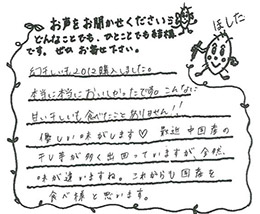 お声をお聞かせください
どんなことでも、ひとことでも結構
です。ぜひ お寄せ下さい。
ほしたん
幻干しいも2012購入しました。
本当に本当においしかったです。こんなに
甘い干しいも食べたことありません!!
優しい味がします♡ 最近中国産の
干し芋が多く出回っていますが、全然、
味が違いますね。これからも国産を
食べ様と思います。